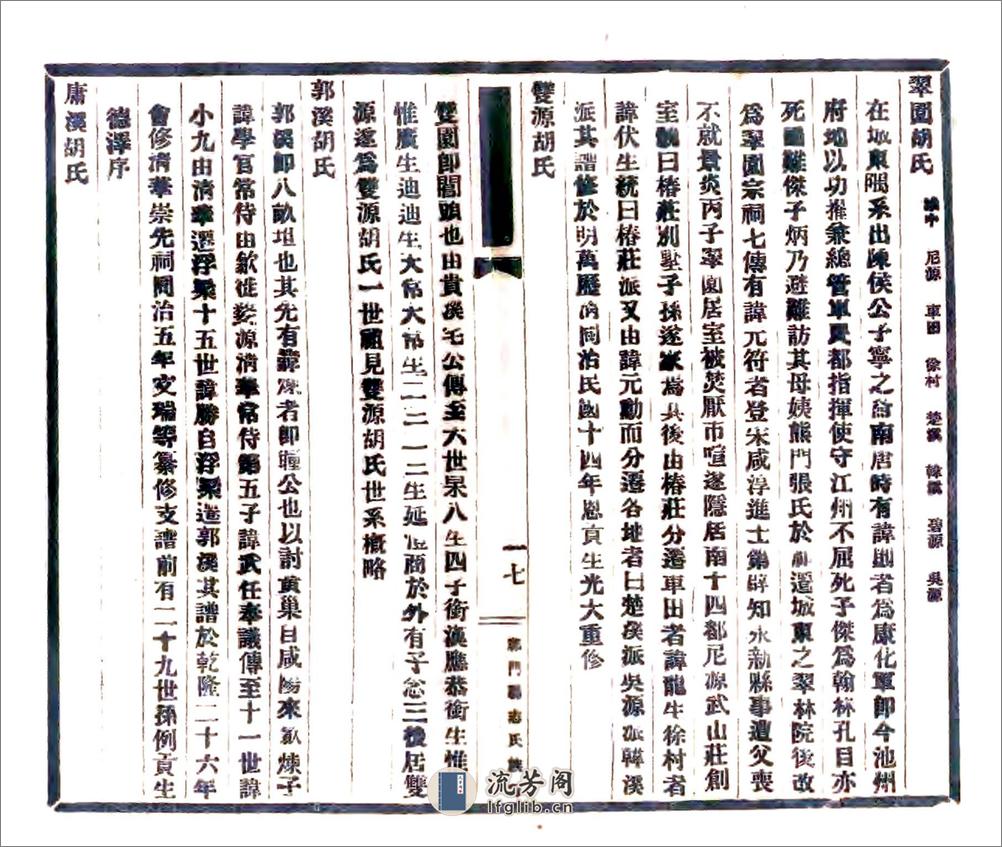 翠園胡氏 城中 尼源 車田 徐村 楚溪 韓溪 碧源 吳源
在城東隅系出陳侯公子寧之裔南唐時有諱則者爲康化軍卽今池州
府地以功擢兼總管軍民都指揮使守江州不屈死子傑爲翰林孔目亦
死國難傑子炳乃避難訪其母姨熊門張氏於祁遷城東之翠林院後改
爲翠園宗祠七傳有諱元符者登宋咸淳進士第辟知永新縣事遭父喪
不就景炎丙子翠園居室被焚厭市喧遂隱居南十四都尼源武山莊創
室號曰椿莊別墅子孫遂家焉其後由椿莊分遷車田者諱龍生徐村者
諱伏生統曰椿莊派又由諱元勳而分遷各地者曰楚溪派吳源派韓溪
派其譜修於明萬歷淸同治民國十四年恩貢生光大重修
雙源胡氏
一七
祁門縣志氏族
雙園卽閶頭也由貴溪宅公傳至六世杲八生四子衝漢應恭衝生惟
惟廣生迪迪生大常大常生二一二一二生延 商於外有子念三後居雙
源遂爲雙源胡氏一世祖見雙源胡氏世系槪略
郭溪胡氏
郭溪卽八畝坦也其先有諱 者卽瞳公也以討黄巢自咸陽來歙煉子
諱學官常侍由歙徙婺源淸華常侍第五子諱武任奉議傳至十一世諱
小九由淸華遷浮梁十五世諱勝自浮梁遷郭溪其譜於乾隆二十六年
會修淸華崇先祠同治五年文瑞等纂修支譜前有二十九世孫例貢生
德澤序
庸溪胡氏
流芳阁
lfglib.cn